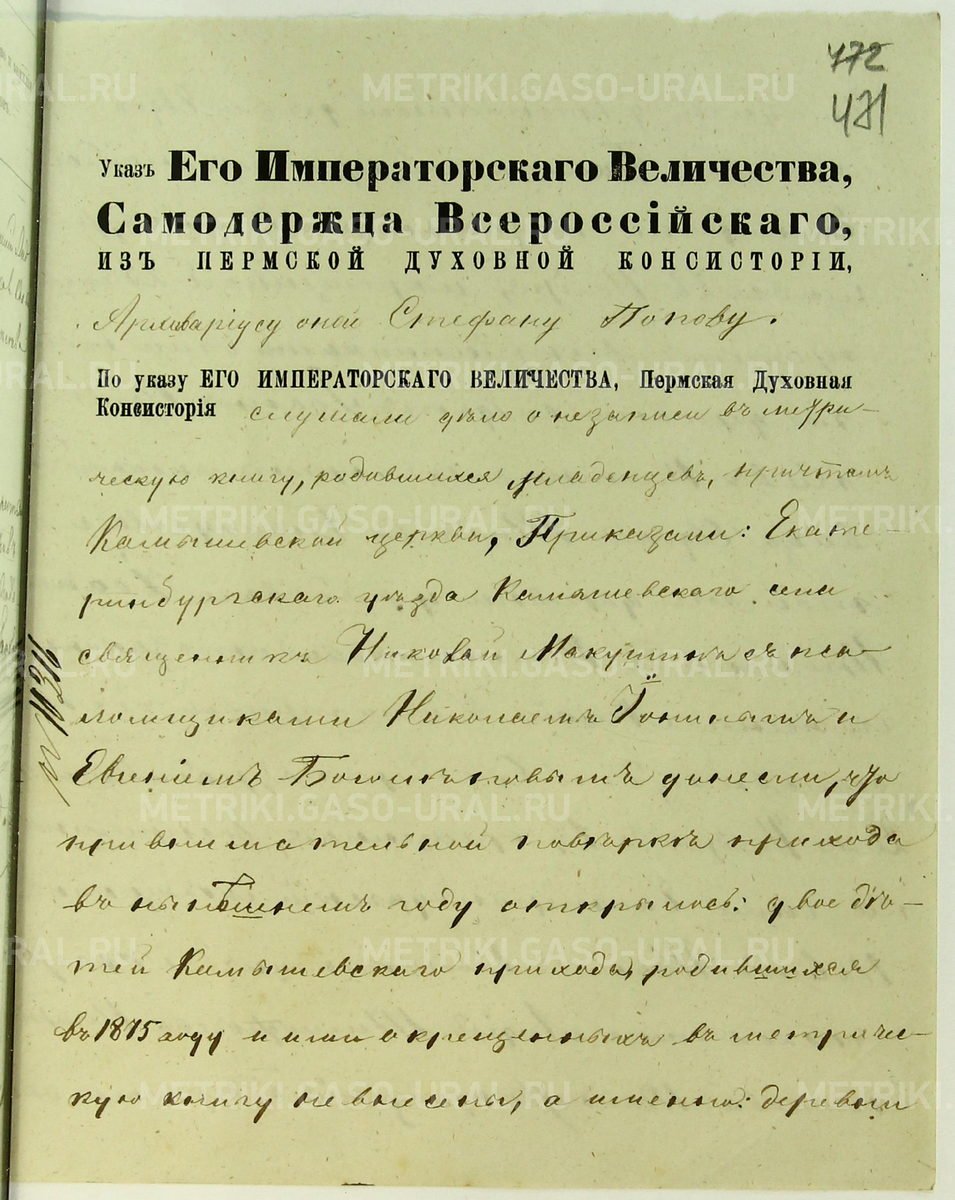 472
471
Указъ Его Императорскаго Величества,
Самодержца Всероссійскаго,
ИЗЪ ПЕРМСКОЙ ДУХОВНОЙ КОНСИСТОРІИ,
Архиваріусу оной Стефану Попову.
По указу ЕГО ИМПЕРАТОРСКАГО ВЕЛИЧЕСТВА, Пермская Духовная
Консисторія слушали дѣло о незаписи въ метри-
ческую книгу, родившихся младенцевъ, причтомъ
Камышевской церкви, Приказали: Екате-
ринбургскаго уѣзда Камышевскаго села
священникъ Николай Макушинъ съ пса-
ломщиками Николаемъ и
Евгеніемъ донесли, что
при внимательной повѣркѣ прихода
въ нынѣшнемъ году открылось: двое дѣ-
тей Камышевскаго прихода, родившихся
въ 1875 году и ими окрещенныхъ въ метриче-
кую книгу не внесены, а именно: деревни
№ 10316
METRIKI.GASO-URAL.RU